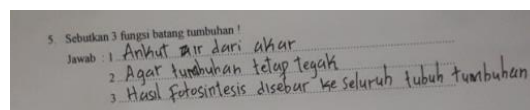 5 Sebutkan 3 fungsi batang tumbuhan !
Jawab : 1 Ankut air dari akar
2 Agar tumbuhan tetap tegak
3 Hasil fotosintesis disebar ke seluruh tubuh tumbuhan